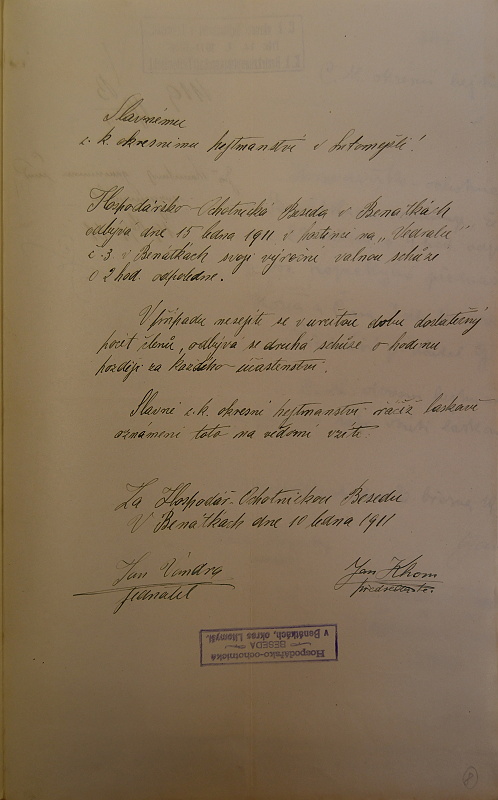 Slavnému
c. k. okresnímu hejtmanství v Litomyšli!
Hospodářsko-Ochotnická Beseda v Benátkách
odbývá dne 15 ledna 1911 v hostinci na „Vedralce"
č. 3 v Benátkách svoji výroční valnou schůze
o 2 hod. odpoledne.
V případu nesejítí se v určitou dobu dostatečný
počet členů, odbývá se druhá schůze o hodinu
později za každého účastenství.
Slavné c. k. okresní hejtmanství račiž laskavě
oznámení toto na vědomí vzíti.
Za Hospodář. Ochotnickou Besedu
V Benátkách dne 10 ledna 1911
Jan Vondra
jednatel
Jan Khom
předseda
Hospodářsko-ochotnická
BESEDA
v Benátkách, okres Litomyšl.
8